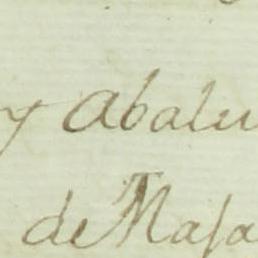 y Abalu
de Masa